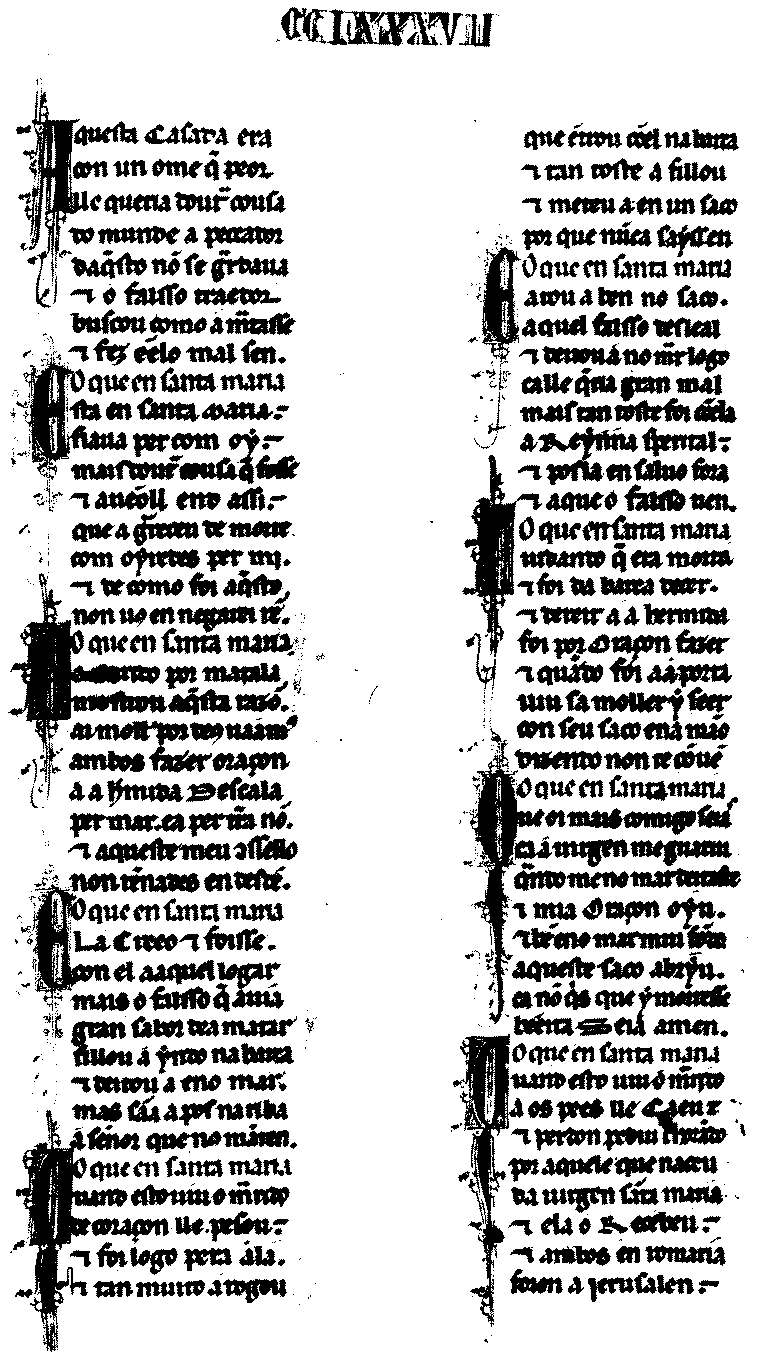 CCLXXXVII
Aquesta Casada era
con un ome q̃ peor
lle queria dout̃ cousa
do mundo a peccador
daq̃sto nõ se gr̃daua
⁊ o falsso traedor
buscou como a m̃tasse
⁊ fez eelo mal sen.
O que en santa maria
Esta en santa Maria
fiaua per com oý
mais
⁊ aueoll end assi
que a de morte
com oyredes per mi.
⁊ de como foi aq̃sto,
non uo en negarei rẽ.
O que en santa maria
por matala
mostrou aq̃sta razõ.
ambos fazer oraçon
a a hr̃mida Descala
per mar. ca per tr̃a nõ.
⁊ aqueste meu cõssello
non tẽnades en desdẽ.
O que en santa maria
Ela Creeo ⁊ foisse.
con el a aquel logar
mais o falsso q̃ auia
gran sabor dea matar
fillou a na barca
⁊ deitou a eno mar.
mas sãa a pos na riba
a sẽnor que no mãten.
O que en santa maria
Quando esto uiu o m̃rido
de coraçon lle pesou
⁊ foi logo pera ala.
⁊ tan muito a rogou
que entrou cõel na barca
⁊ tan toste a fillou
⁊ meteu a en un saco
por que nũca sayssen
O que en santa maria
Atou a ben no saco.
aquel falsso desleal
⁊ deitou a no mar logo
calle q̃ria gran mal
mais tan toste foi
a Reynna sperital
⁊ posea en saluo fora
⁊ aque o falsso uen.
O que en santa maria
cuidando q̃ era morta
⁊ foi da barca decer.
⁊ dereit a a hermida
foi por Oraçon fazer
⁊ quãdo foi aa porta
uiu sa moller y seer
con seu saco ena mão
dizendo non te cõuẽ
O que en santa maria
Que oi mais comigo
ca a uirgen me guariu
q̃ndo me no mar deitaste
⁊ mia Oraçon oyu.
aqueste saco abryu.
ca nõ q̃s que y morresse
beeita Seia amen.
O que en santa maria
Quando esto uiu o m̃rido
a os pees lle Caeu
⁊ perdon pediu
por aquele que naceu
da uirgen sãta maria
⁊ ela o Recebeu
⁊ ambos en romaria
foron a Jerusalen